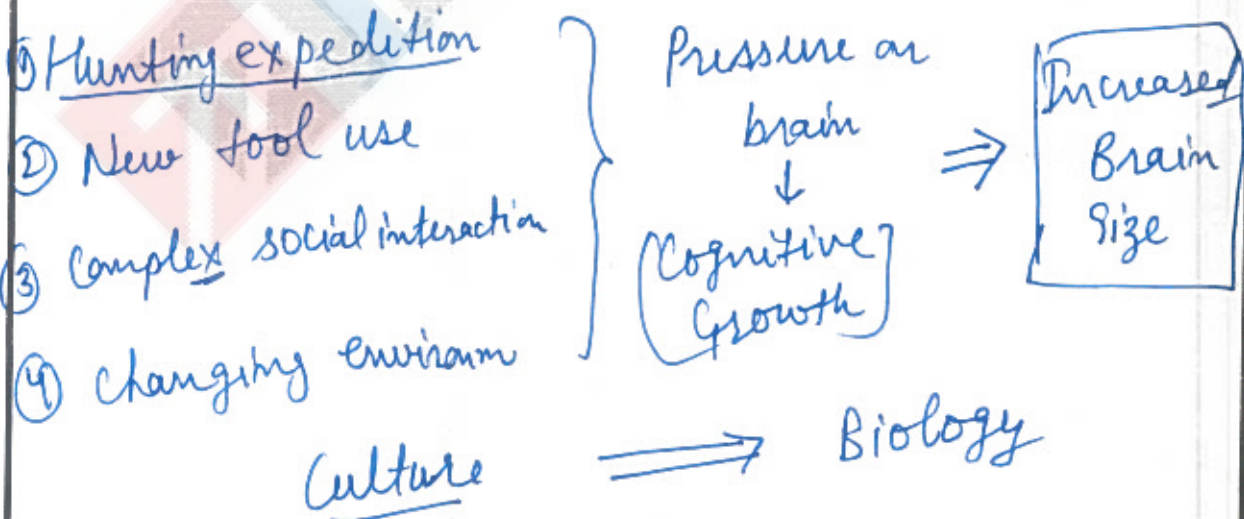 ① Hunting expedition
② New tool use
③ Complex social interaction
④ Changing environm
Pressure on
brain
↓
[Cognitive
Growth]
⇒
Increased
Brain
Size
Culture ⟹ Biology